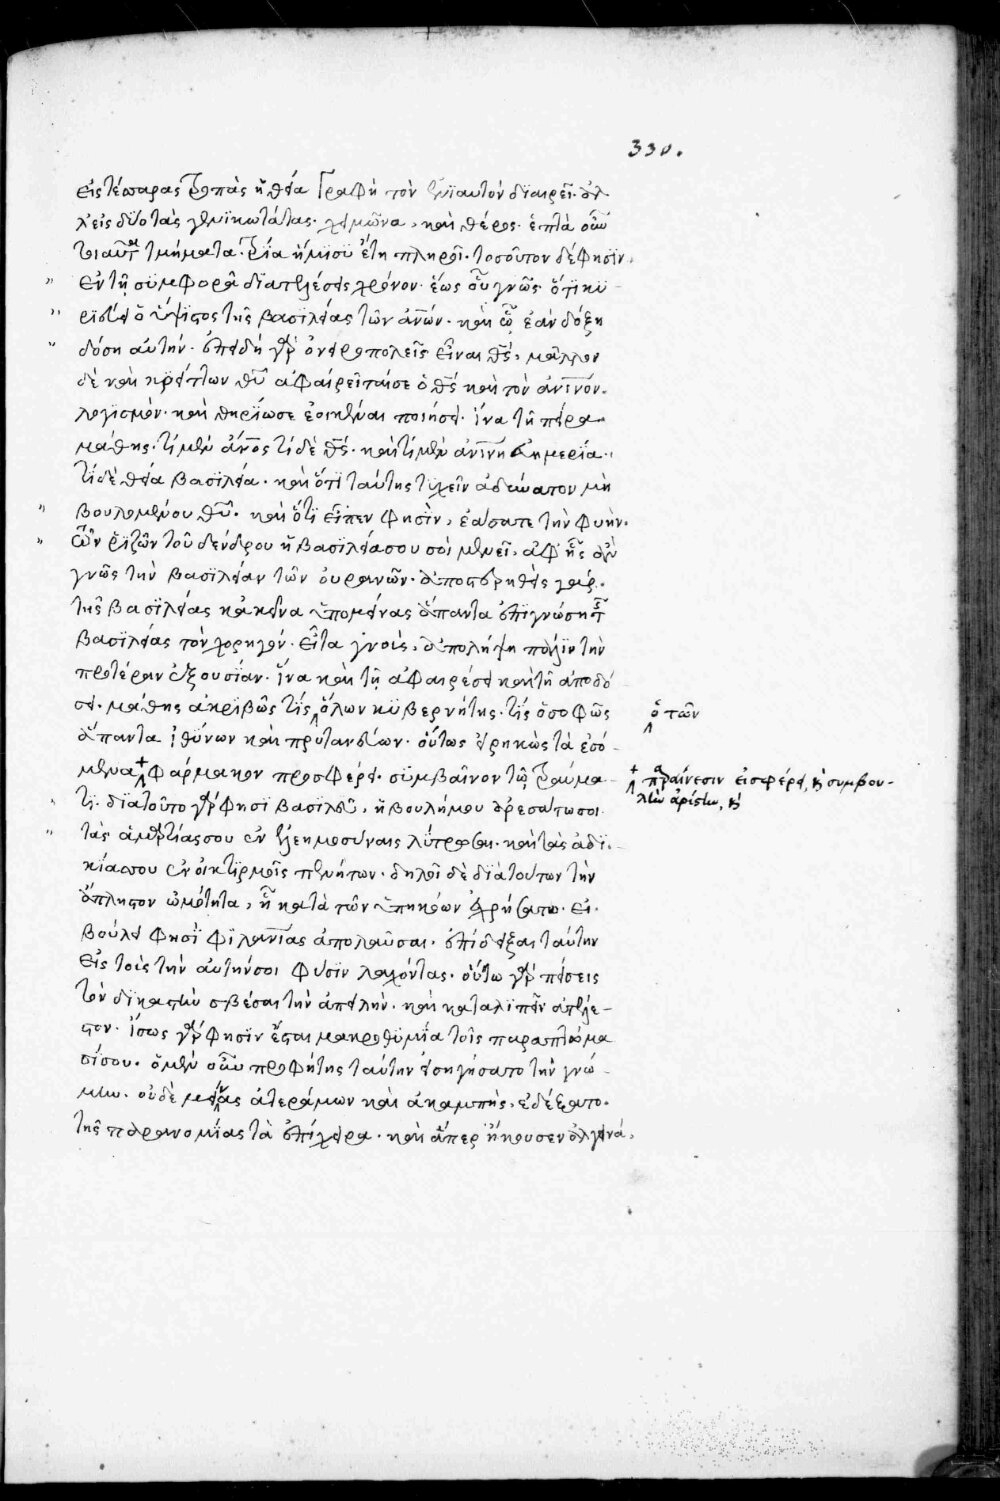 330.
εἰς τέσσαρας τροπὰς ἡ θεία γραφὴ τὸν ἐνϊαυτὸν δϊαιρεῖ· ἀλ
λ' εἰς δύο τὰς γενϊκωτάτας· χειμῶνα, καὶ θέρος· ἑπτὰ οὖν
τοιαῦτα τμήματα· τρία ἥμισυ ἔτη πληροῖ· τοσοῦτον δέ φησϊν
ἐν τῇ συμφορᾷ δϊατελέσεις χρόνον· ἕως οὗ γνῷς· ὅτι κυ
ριεύει ὁ ὕψϊστος τῆς βασϊλείας τῶν ἀνων· καὶ ᾧ ἐὰν δόξη
δόση αὐτήν· ἐπειδὴ γὰρ ὀνειροπολεῖς εἶναι θς, μᾶλλον
δὲ καὶ κρείττων θυ ἀφαιρεῖταί σε ὁ θς καὶ τὸν ἀνινον
λογισμόν· καὶ θηρίω σε ἐοικέναι ποιήσει· ἵνα τῇ πείρα
μάθης· τί μὲν ἄνος τί δὲ θς· καὶ τί μὲν ἀνινη εὐημερία·
τί δὲ θεία βασϊλεία· καὶ ὅτι ταύτης τυχεῖν ἀδύνατον μὴ
βουλομένου θυ· καὶ ὅτι εἶπεν φησὶν, ἐάσατε τὴν φυὴν
τῶν ῥιζῶν τοῦ δένδρου ἡ βασϊλεία σου σοὶ μενεῖ, ἀφ' ἧς ἂν
γνῷς τὴν βασϊλείαν τῶν οὐρανῶν· ἀποστερηθεὶς γάρ
τῆς βασϊλείας κἀκεῖνα ὑπομείνας ἅπαντα ἐπϊγνώση τῆς
βασϊλείας τὸν χορηγόν· εἶτα γνοὺς, ἀπολήψη πάλϊν τὴν
προτέραν ἐξουσίαν· ἵνα καὶ τῇ ἀφαιρέσει καὶ τῇ ἀποδό
σει· μάθης ἀκριβῶς τίς ὅλων κυβερνήτης· τίς ὁ σοφῶς
ἅπαντα ἰθύνων καὶ πρυτανεύων· οὕτως εἰρηκὼς τὰ ἐσό
μενα φάρμακον προσφέρει· συμβαῖνον τῷ τραύμα
τι· διὰ τοῦτο γὰρ φησϊ βασϊλεῦ, ἡ βουλή μου ἀρεσάτω σοι
τὰς ἁμαρτίας σου ἐν ἐλεημοσύναις λύτρωσαι· καὶ τὰς ἀδϊ
κίας σου ἐν οἰκτιρμοῖς πενήτων· δηλοῖ δὲ διὰ τούτων τὴν
ἄπληστον ὠμότητα, ᾗ κατὰ τῶν ὑπηκόων ἐχρήσατο· εἰ
βούλει φησὶ φιλανίας ἀπολαῦσαι· ἐπίδειξαι ταύτην
εἰς τοὺς τὴν αὐτήν σοι φύσϊν λαχόντας· οὕτω γὰρ πείσεις
τὸν δϊκαστὴν σβέσαι τὴν ἀπειλήν· καὶ καταλϊπεῖν ἀτέλε
στον· ἴσως γὰρ φησὶν ἔσται μακροθυμία τοῖς παραπτώμα
σί σου· ὁ μὲν οὖν προφήτης ταύτην εἰσηγήσατο τὴν γνώ
μην· οὐδὲ μείνας ἀτεράμων καὶ ἀκαμπὴς, ἐδέξατο
τῆς παρανομίας τὰ ἐπίχειρα· καὶ ἅπερ ἤκουσεν ἀλγεινά,
ὁ τῶν
παραίνεσιν εἰσφέρει, καὶ συμβου-
λὴν ἀρίστην, καὶ